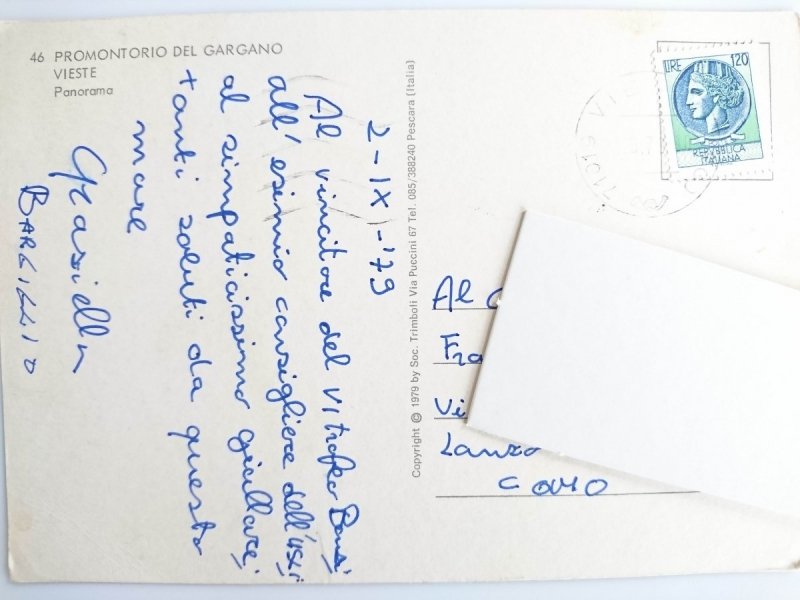 46 PROMONTORIO DEL GARGANO
VIESTE
Panorama
2-IX-'79
Al vincitore del VI trofeo
all'esimio consigliere dell'
al simpaticissimo giullare:
tanti saluti da questo
mare
Graziella
BARGILLIO
Copyright © 1979 by Soc. Trimboli Via Puccini 67 Tel. 085/388240 Pescara (Italia)
LIRE 120
REPVBBLICA
ITALIANA
Al
Fra
Vi
Lanzo
COMO